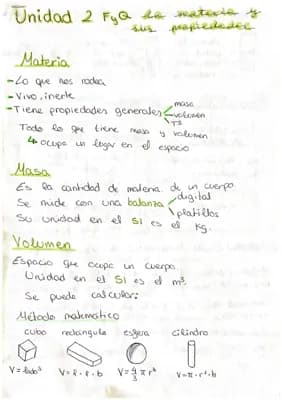 Unidad 2 FyQ la materia y
sus propiedades
Materia
-Lo que nos rodea
-Vivo, inerte
-Tiene propiedades generales
masa
volumen
Tª
Todo lo que tiene masa y volumen
ocupa un lugar en el espacio
Masa
Es la cantidad de materia de un cuerpo
Se mide con una balanza
digital
platillos
Su unidad en el SI es el Kg.
Volumen
Espacio que ocupa un cuerpo
Unidad en el SI es el m³
Se puede calcular:
Método matemático
cubo rectángulo esfera cilindro
V = lado³ V = l · l · b V = 4/3 π r³ V = π · r² · b